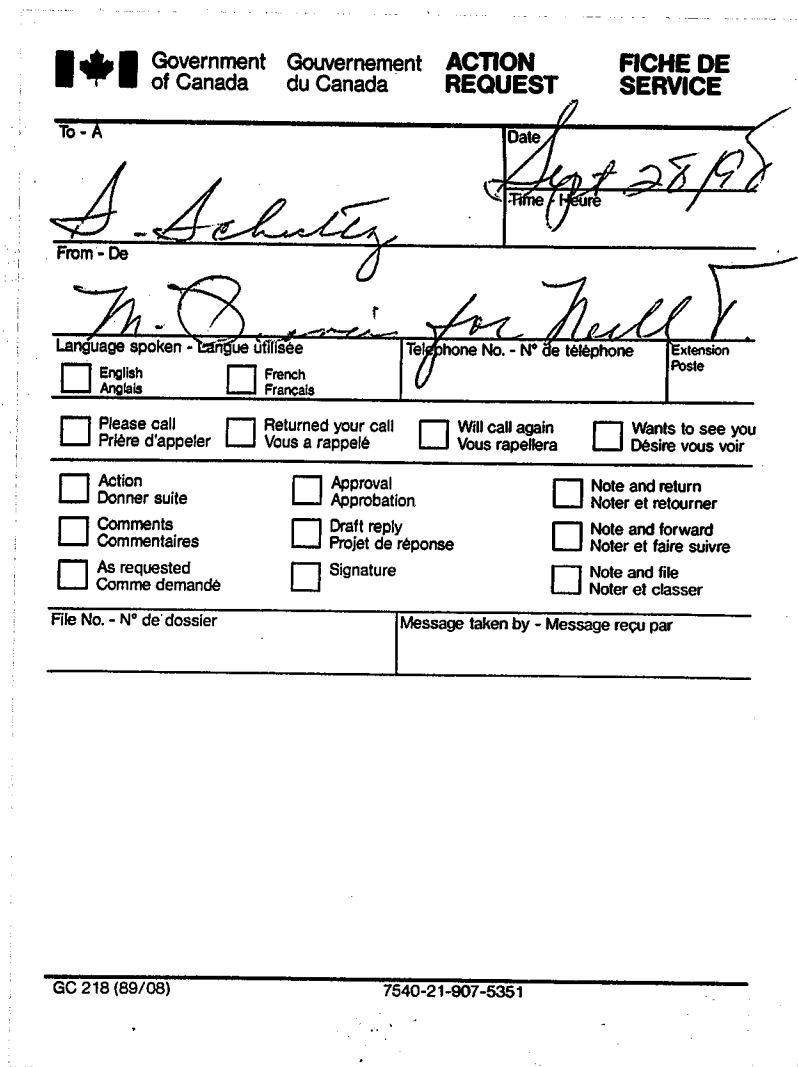 Government of Canada Gouvernement du Canada ACTION REQUEST FICHE DE SERVICE
To - A
S. Schultz
Date
Sept 28/98
Time - Heure
From - De
M. for Neill T.
Language spoken - Langue utilisée
English
Anglais
French
Français
Telephone No. - N° de téléphone
Extension
Poste
Please call
Prière d'appeler
Returned your call
Vous a rappelé
Will call again
Vous rapellera
Wants to see you
Désire vous voir
Action
Donner suite
Approval
Approbation
Note and return
Noter et retourner
Comments
Commentaires
Draft reply
Projet de réponse
Note and forward
Noter et faire suivre
As requested
Comme demandé
Signature
Note and file
Noter et classer
File No. - N° de dossier
Message taken by - Message reçu par
GC 218 (89/08)
7540-21-907-5351